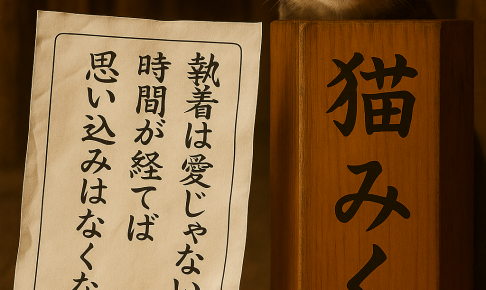 執着は愛じゃない
時間が経てば
思い込みはなくな
猫みく